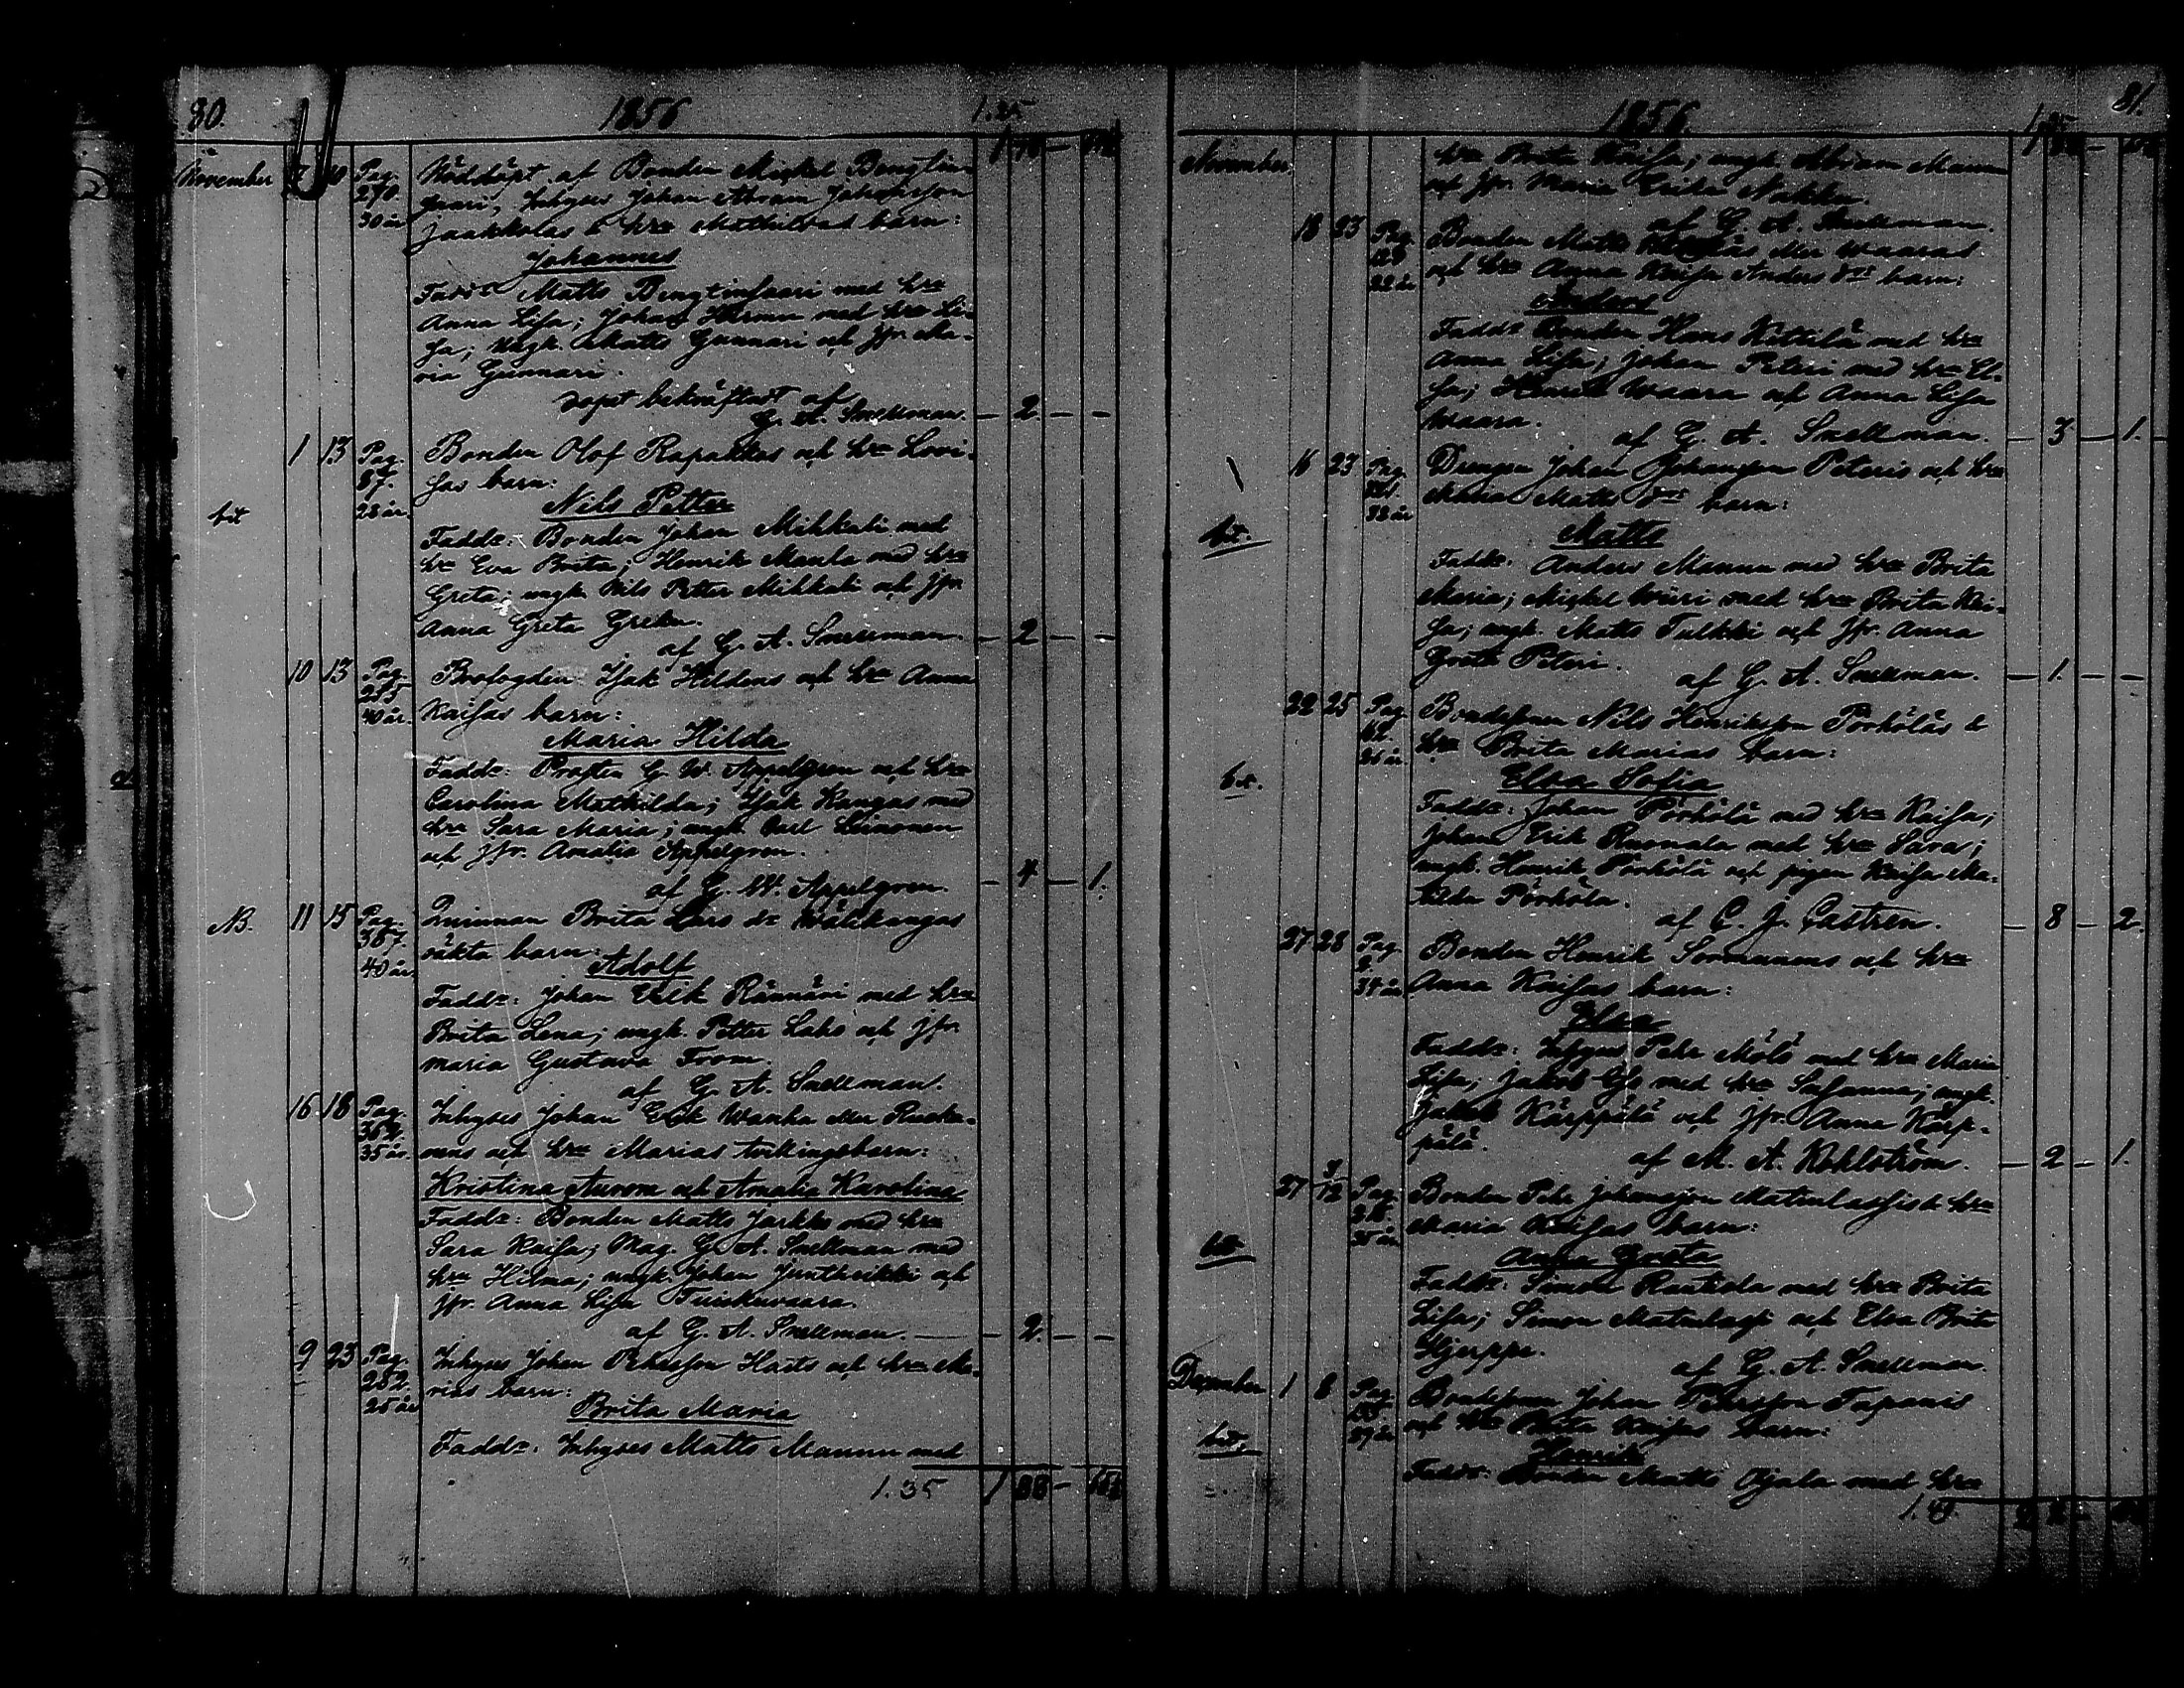 80. 1856 1.25
November 7 10 Pag. 270. 30 år Nöddöpt af Bonden Mickel Bengtin-
Juuri, Inhyses Johan Abram Johansson
Jaakkolas & hu Mathildas barn:
Johannes
Fadd: Matts Bengtinjuuri med hu
Anna Lisa; Johan Hermu med hu Li-
sa; ungk. Matts Gunnari och jfr. Ma-
ria Gunnari.
dopet bekräftadt af
G. A. Snellman. — 2 — —
1 13 Pag. 87. 28 år. Bonden Olof Rapakkos och hu Lovi-
sas barn:
Nils Petter
bit
Fadd: Bonden Johan Mikkali med
hu Eva Brita; Henrik Maula med hu
Greta; ungk. Nils Petter Mikkali och jfr
Anna Greta Greku.
af G. A. Snellman. — 2 — —
10 13 Pag. 285 40 år. Brofogden Isak Heldens och hu Anna
Kaisas barn:
Maria Hilda
Fadd: Prosten G. W. Appelgren och hu
Carolina Mathilda; Isak Kangas med
hu Sara Maria; ungk. Carl Leinonen
och jfr. Amalia Appelgren.
af G. W. Appelgren. — 4 — 1.
NB. 11 15 Pag. 367. 40 år. Quinnan Brita Lars dr Wälikangas
oäkta barn:
Adolf
Fadd: Johan Erik Rännäri med hu
Brita Lena; ungk. Petter Laho och jfr.
Maria Gustava From.
af G. A. Snellman.
16 18 Pag. 362. 35 år. Inhyses Johan Erik Wanha eller Ruoka-
nens och hu Marias tvillingsbarn:
Kristina Aurora och Amalia Karolina
Fadd: Bonden Matts Jarkko med hu
Sara Kaisa; Mag. G. A. Snellman med
hu Hilma; ungk. Johan Junthikki och
jfr. Anna Lisa Tuiskuvaara.
af G. A. Snellman. — 2. — —
9 23 Pag. 252. 25 år Inhyses Johan Pehrsson Haits och hu Ma-
rias barn:
Brita Maria
Fadd: Inhyses Matts Mannu med
1.35 1 88 —
1856. 81.
November. hu Brita Kaisa; ungk. Abram Mannu
och jfr. Maria Erika Nokkla.
af G. A. Snellman.
18 23 Pag. 22 år Bonden Matts eller Waaras
och hu Anna Kaisa Anders drs barn:
Anders
Fadd: Bonden Hans Kittilä med hu
Anna Lisa; Johan Peteri med hu El-
sa; Henrik Waara och Anna Lisa
Waara.
af G. A. Snellman. — 3 — 1.
16 23 Pag. 38 år Drengen Johan Johansson Peteris och hu
Maria Matts drs barn:
Matts
bit.
Fadd: Anders Mannu med hu Brita
Maria; Mickel Wiiri med hu Brita Kai-
sa; ungk. Matts Tulkki och jfr. Anna
Greta Peteri.
af G. A. Snellman. — 1. — —
22 25 Pag. 62 36 år Bondesonen Nils Henriksson Pörhöläs &
hu Brita Marias barn:
Elsa Sofia
bit.
Fadd: Johan Pörhölä med hu Kaisa;
Johan Erik Ruonala med hu Sara;
ungk. Henrik Pörhölä och pigan Kaisa Ma-
tilda Pörhölä.
af C. J. Castren. — 8 — 2.
27 28 Pag. 2. 34 år Bonden Henrik Sormunens och hu
Anna Kaisas barn:
Elsa
Fadd: Inhyses Pehr Mölö med hu Maria
Lisa; Jakob Ylö med hu Susanna; ungk.
Jakob Kärppälä och jfr. Anna Kärp-
pälä.
af M. A. Rohlström. — 2 — 1.
27 3/12 Pag. 35 år Bonden Pehr Johansson Matinlassis & hu
Maria Kaisas barn:
Anna Greta
bit
Fadd: Simon Rautiola med hu Brita
Lisa; Simon Matinlassi och Elsa Brita
Hjerppe.
af G. A. Snellman.
December 1 8 Pag. 39 år Bondesonen Johan Pehrsson Tapanis
och hu Brita Kaisas barn:
Henrik
bit.
Fadd: Bonden Matts Ojala med hu